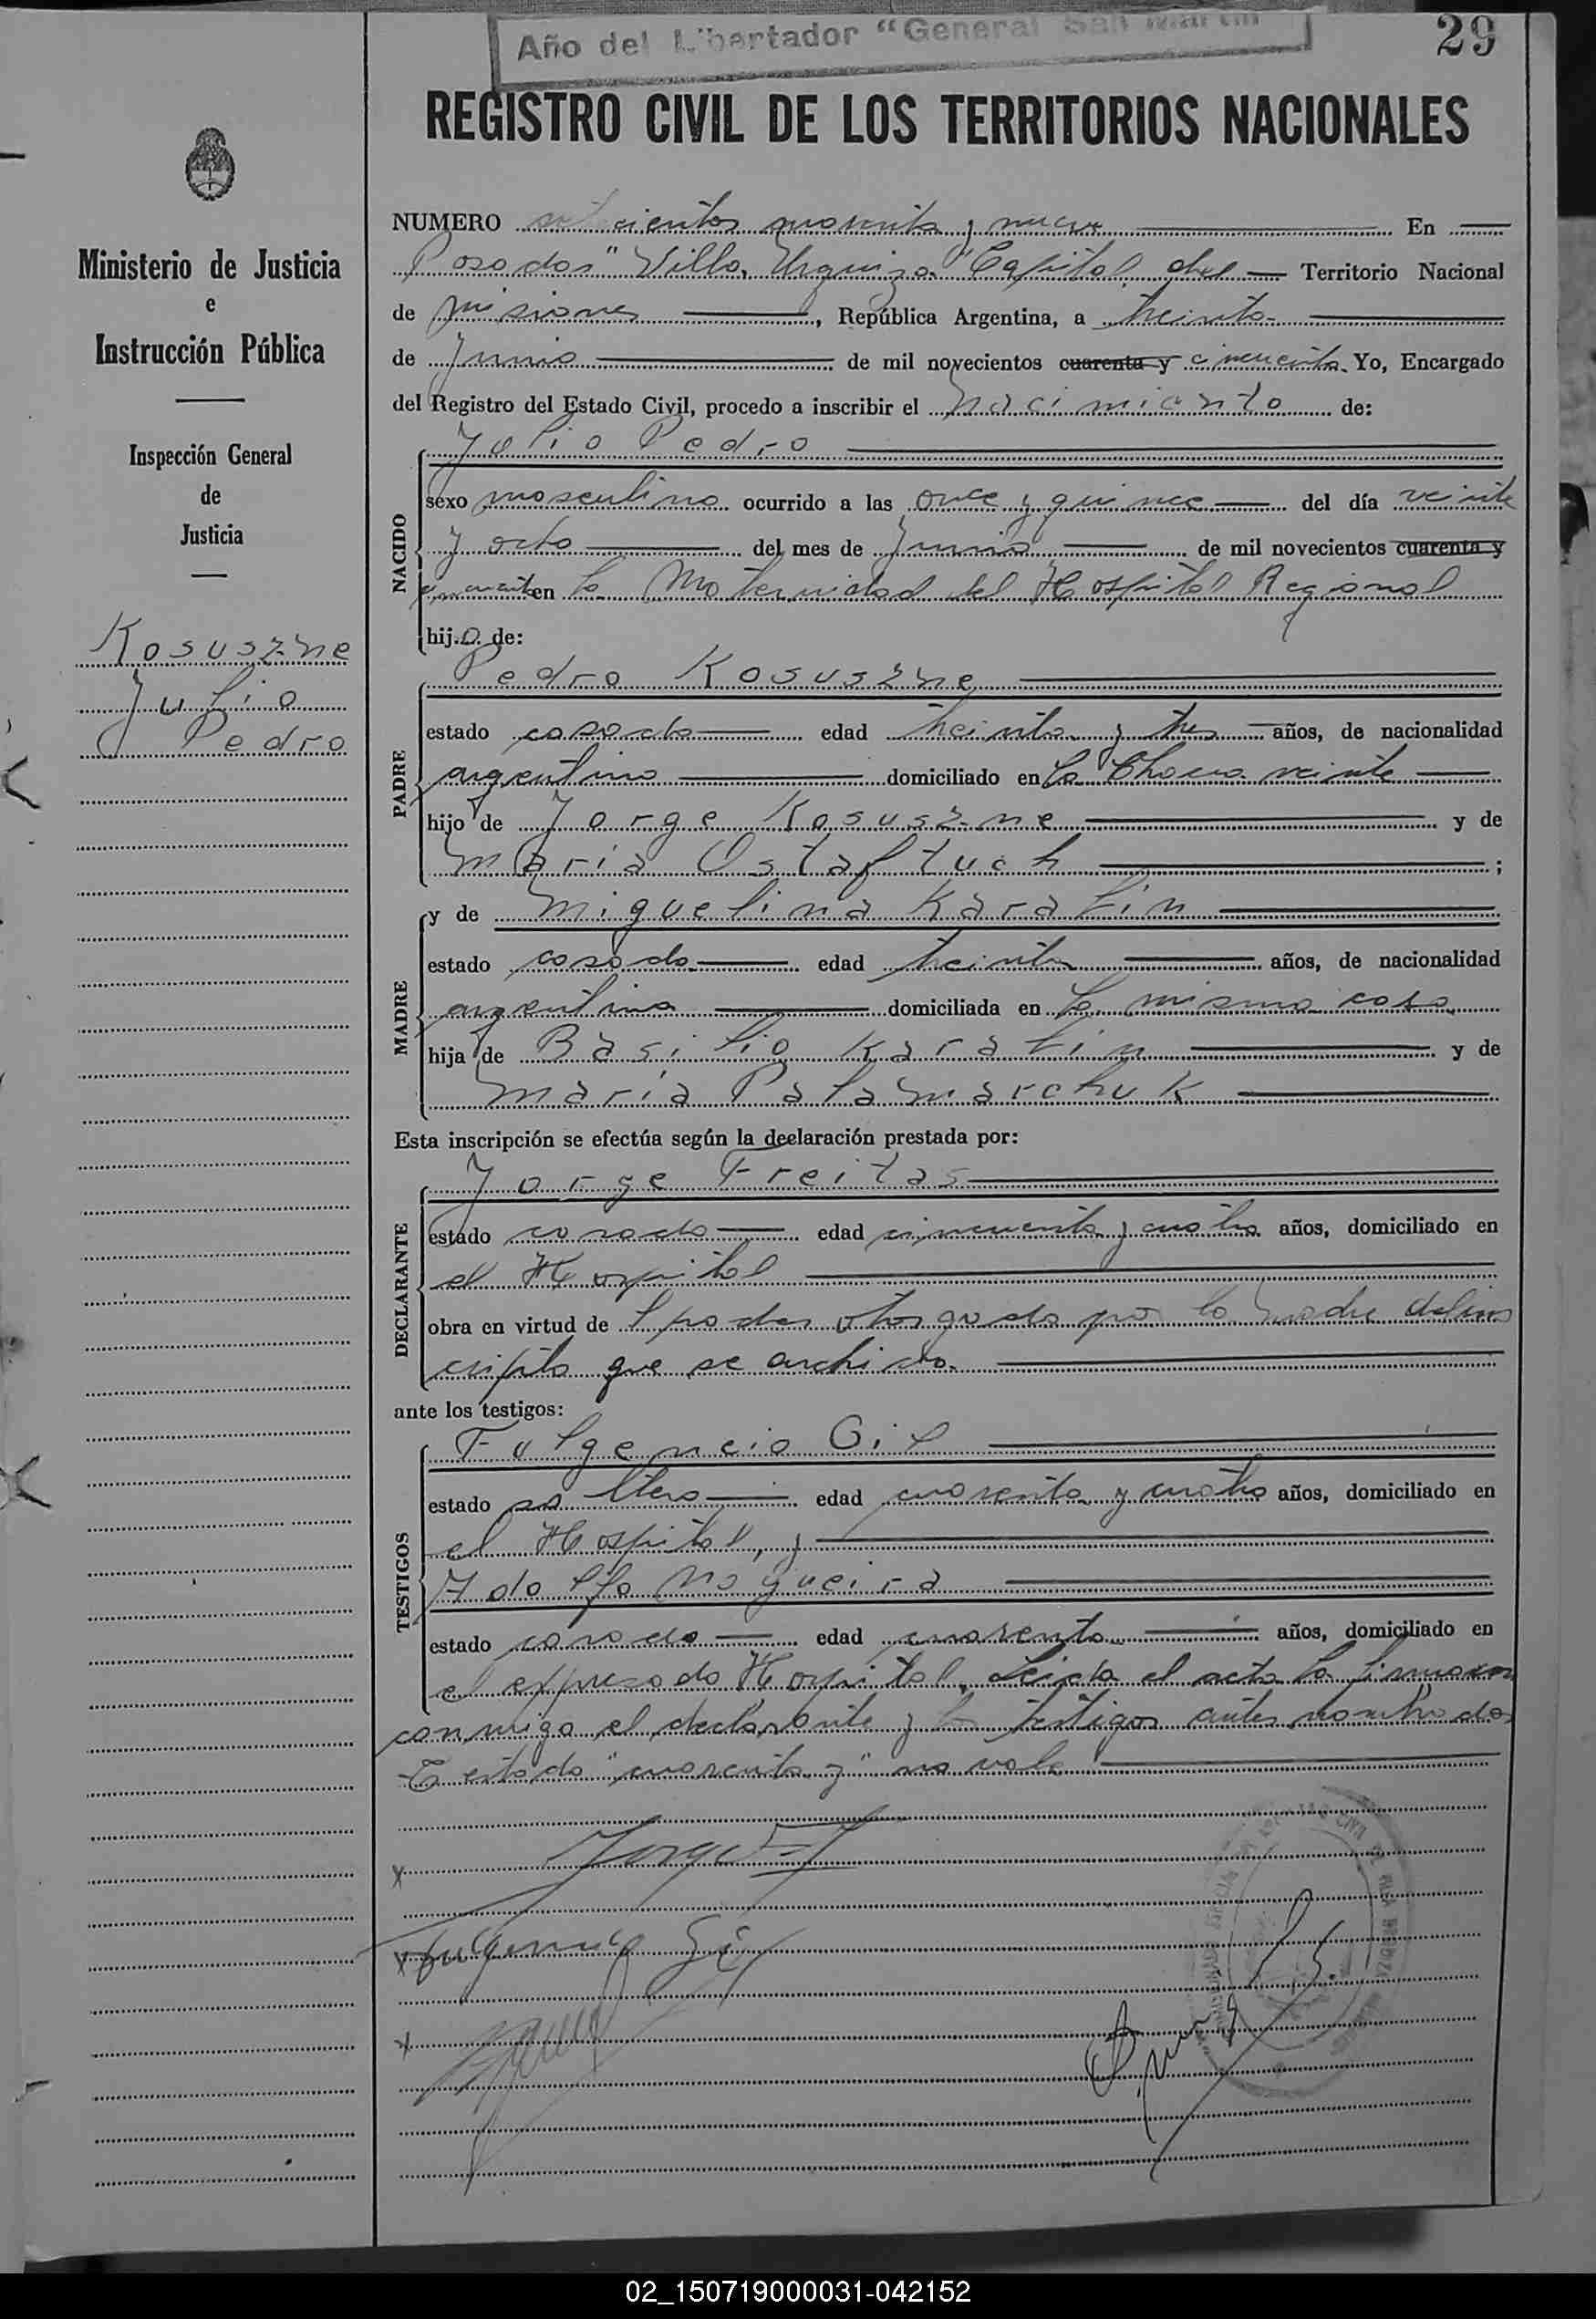 Año del Libertador "General San Martín"
29
REGISTRO CIVIL DE LOS TERRITORIOS NACIONALES
Ministerio de Justicia
e
Instrucción Pública
Inspección General
de
Justicia
Kosuszne
Julio
Pedro
NUMERO setecientos cuarenta y nueve En
Posadas "Villa Urquiza" Capital del Territorio Nacional
de Misiones, República Argentina, a treinta
de Junio de mil novecientos cuarenta y cincuenta Yo, Encargado
del Registro del Estado Civil, procedo a inscribir el nacimiento de:
NACIDO
Julio Pedro
sexo masculino ocurrido a las once y quince del día veinte
y ocho del mes de Junio de mil novecientos cuarenta y
cincuenta en la Maternidad del Hospital Regional
hijo de:
PADRE
Pedro Kosuszne
estado casado edad treinta y tres años, de nacionalidad
argentino domiciliado en la Chacra veinte
hijo de Jorge Kosuszne y de
María Ostaftuch;
MADRE
y de Miguelina Karatin
estado casada edad treinta años, de nacionalidad
argentina domiciliada en la misma casa
hija de Basilio Karatin y de
María Palamarchuk
Esta inscripción se efectúa según la declaración prestada por:
DECLARANTE
Jorge Freitas
estado casado edad cincuenta y cuatro años, domiciliado en
el Hospital
obra en virtud de poder otorgado por la madre del ins
cripto que se archiva.
ante los testigos:
TESTIGOS
Fulgencio Gil
estado soltero edad cuarenta y cuatro años, domiciliado en
el Hospital, y
Adolfo Nogueira
estado casado edad cuarenta años, domiciliado en
el expresado Hospital. Leida el acta la firmaron
conmigo el declarante y los testigos antes nombrados
Testado "cuarenta y" no vale
x Jorge F
x Fulgencio Gil
x
02_150719000031-042152